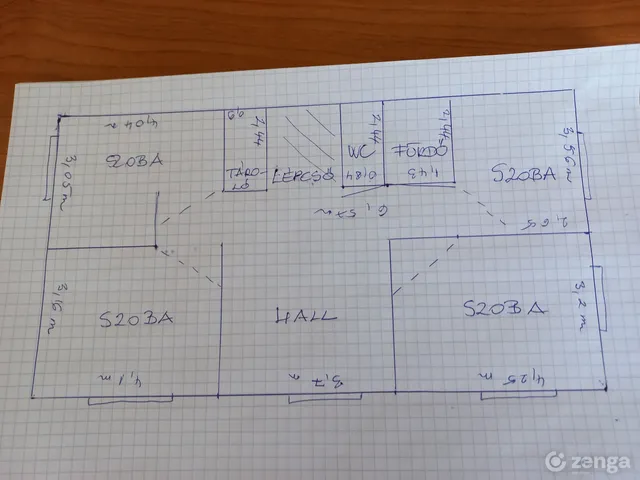 4,04 m
0,9
2,44
2,44
2,44
3,05 m
SZOBA
TÁRO-
LÉPCSŐ
WC
0,84
FÜRDŐ
1,43
SZOBA
3,56 m
6,57 m
2,65
3,16 m
SZOBA
HALL
SZOBA
3,2 m
4,1 m
3,7 m
4,25 m
zenga